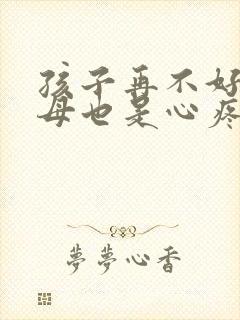 孩子再不好
母也是心疼
夢夢心香